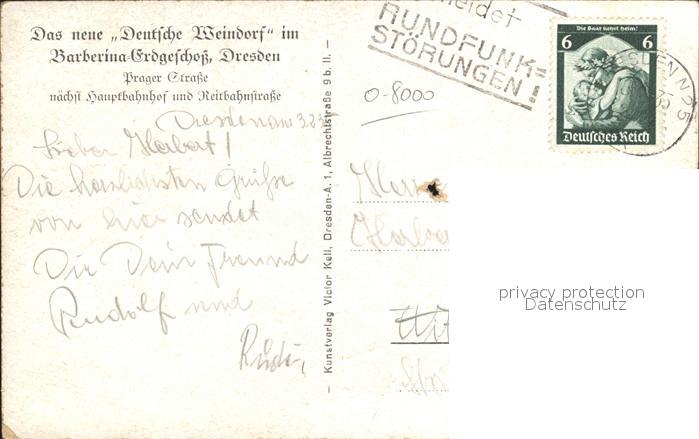 Das neue „Deutsche Weindorf“ im
Barberina-Erdgeschoß, Dresden
Prager Straße
nächst Hauptbahnhof und Reitbahnstraße
Dresden am 3.2.35
Lieber Herbert!
Die herzlichsten Grüße
von hier sendet
Dir Dein Freund
Rudolf und
– Kunstverlag Victor Keil, Dresden-A. 1, Albrechtstraße 9 b. II. –
meidet
RUNDFUNK=
STÖRUNGEN!
0-8000
Die Saar kehrt heim!
6 6
Deutsches Reich
DRESDEN N 25
Herrn
privacy protection
Datenschutz